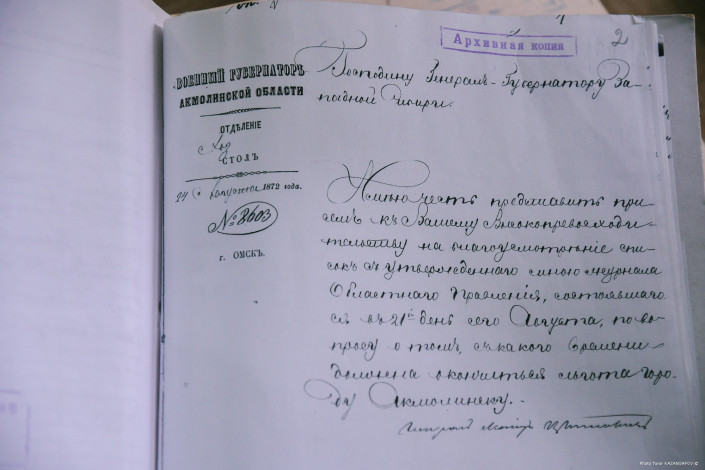 Архивная копия
2
ВОЕННЫЙ ГУБЕРНАТОРЪ
АКМОЛИНСКОЙ ОБЛАСТИ
ОТДѢЛЕНІЕ
СТОЛЪ
24 Августа 1872 года.
№ 8603
г. ОМСКЪ.
Господину Генералъ-Губернатору За-
падной Сибири.
Имѣю честь представить при
семъ къ Вашему Высокопревосходи-
тельству на благоусмотрѣніе спи-
сокъ съ утвержденнаго мною журнала
Областнаго Правленія, состоявшаго
ся въ 21й день сего Августа, по во-
просу о томъ, съ какого времени
должна окончиться льгота горо-
ду Акмолинску.
Генералъ Маіоръ
Photo Turar KAZANGAPOV ©